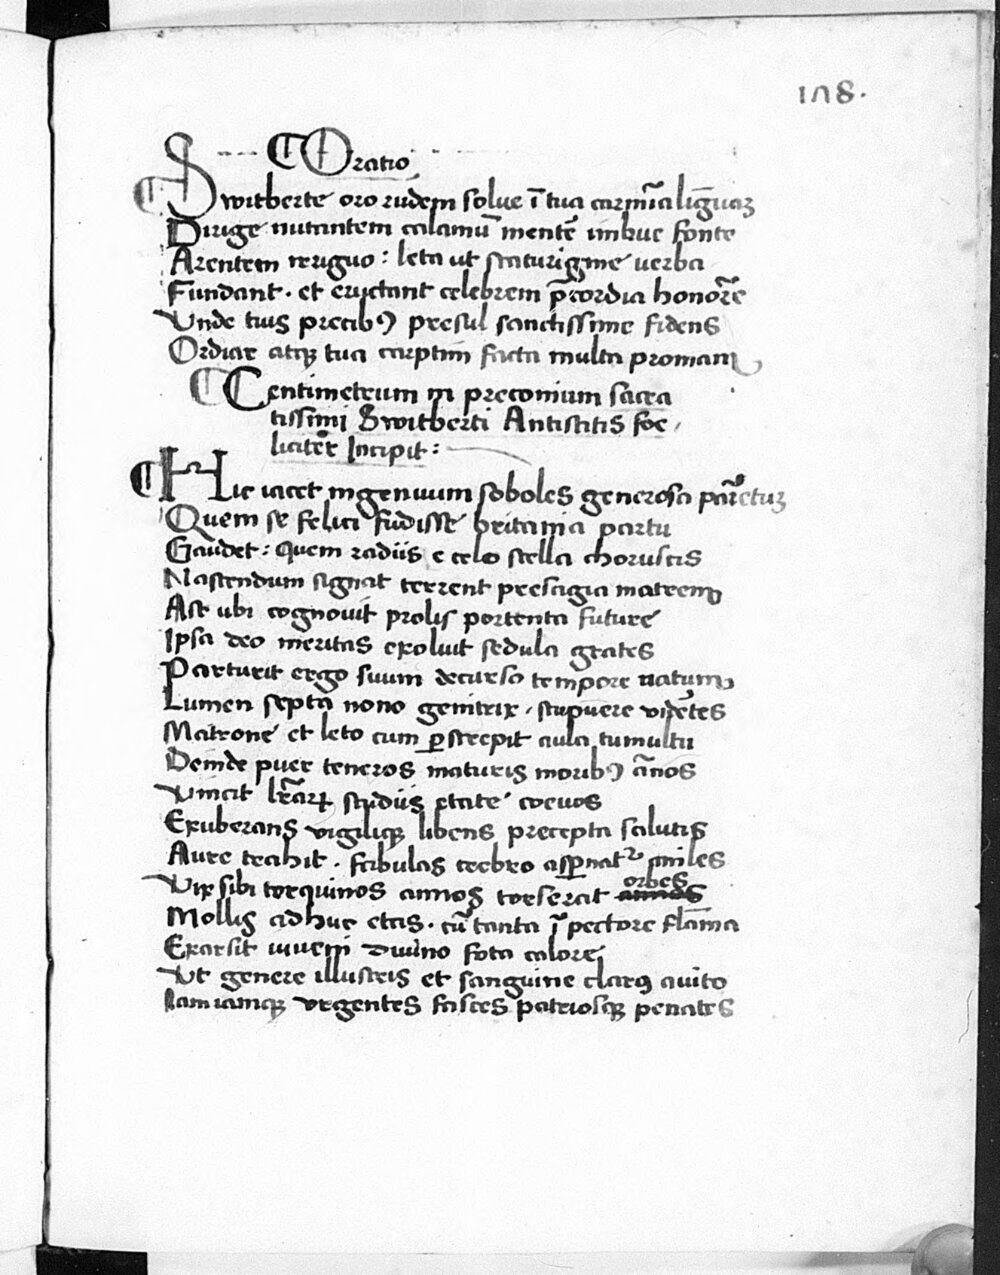 108.
Oratio
Switberte oro rudem solue ī tua carmīa līguaꝫ
Dirige nutantem calamū mentē imbue fonte
Arentem reriguo : leta ut scaturigine uerba
Fundant · et eructant celebrem p̄cordia honorē
Unde tuis precibꝰ presul sanctissime fidens
Ordiar atqꝫ tua carptim facta multa promam
Centimetrum in preconium sacra
tissimi Switberti Antistitis foe
liciter Incipit :
Hic iacet ingenuum soboles generosa parētuꝫ
Quem se felici fudisse britania partu
Gaudet : quem radiis e celo stella choruscis
Nascendum signat terrent presagia matrem
Ast ubi cognouit prolis portenta future
Ipsa deo meritas exoluit sedula grates
Parturit ergo suum decurso tempore natum
Lumen septa nono genitrix · stupuere vidētes
Matrone et leto cum ꝑstrepit aula tumultu
Deinde puer teneros maturis moribꝰ ānos
Vincit lr̄arꝝ studiis etate coeuos
Exuberans vigiliqꝫ libens precepta salutis
Aure trahit · fabulas crebro asꝑnatᷣ aniles
Vix sibi torquinos annos torserat orbes
Mollis adhuc etas · cū tanta ī pectore flāma
Exarsit iuueni diuino fota calore
Ut genere illustris et sanguine clarꝰ auito
Iam iamqꝫ urgentes fasces patriosqꝫ penates